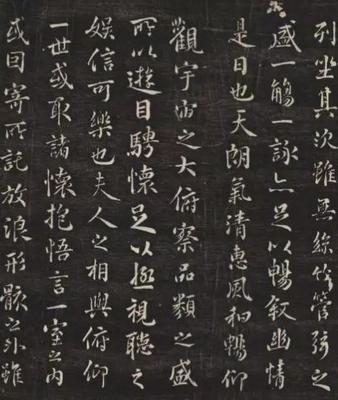 列坐其次雖無絲竹管弦之
盛一觴一詠亦足以暢敘幽情
是日也天朗氣清惠風和暢仰
觀宇宙之大俯察品類之盛
所以遊目騁懷足以極視聽之
娛信可樂也夫人之相與俯仰
一世或取諸懷抱悟言一室之內
或因寄所託放浪形骸之外雖